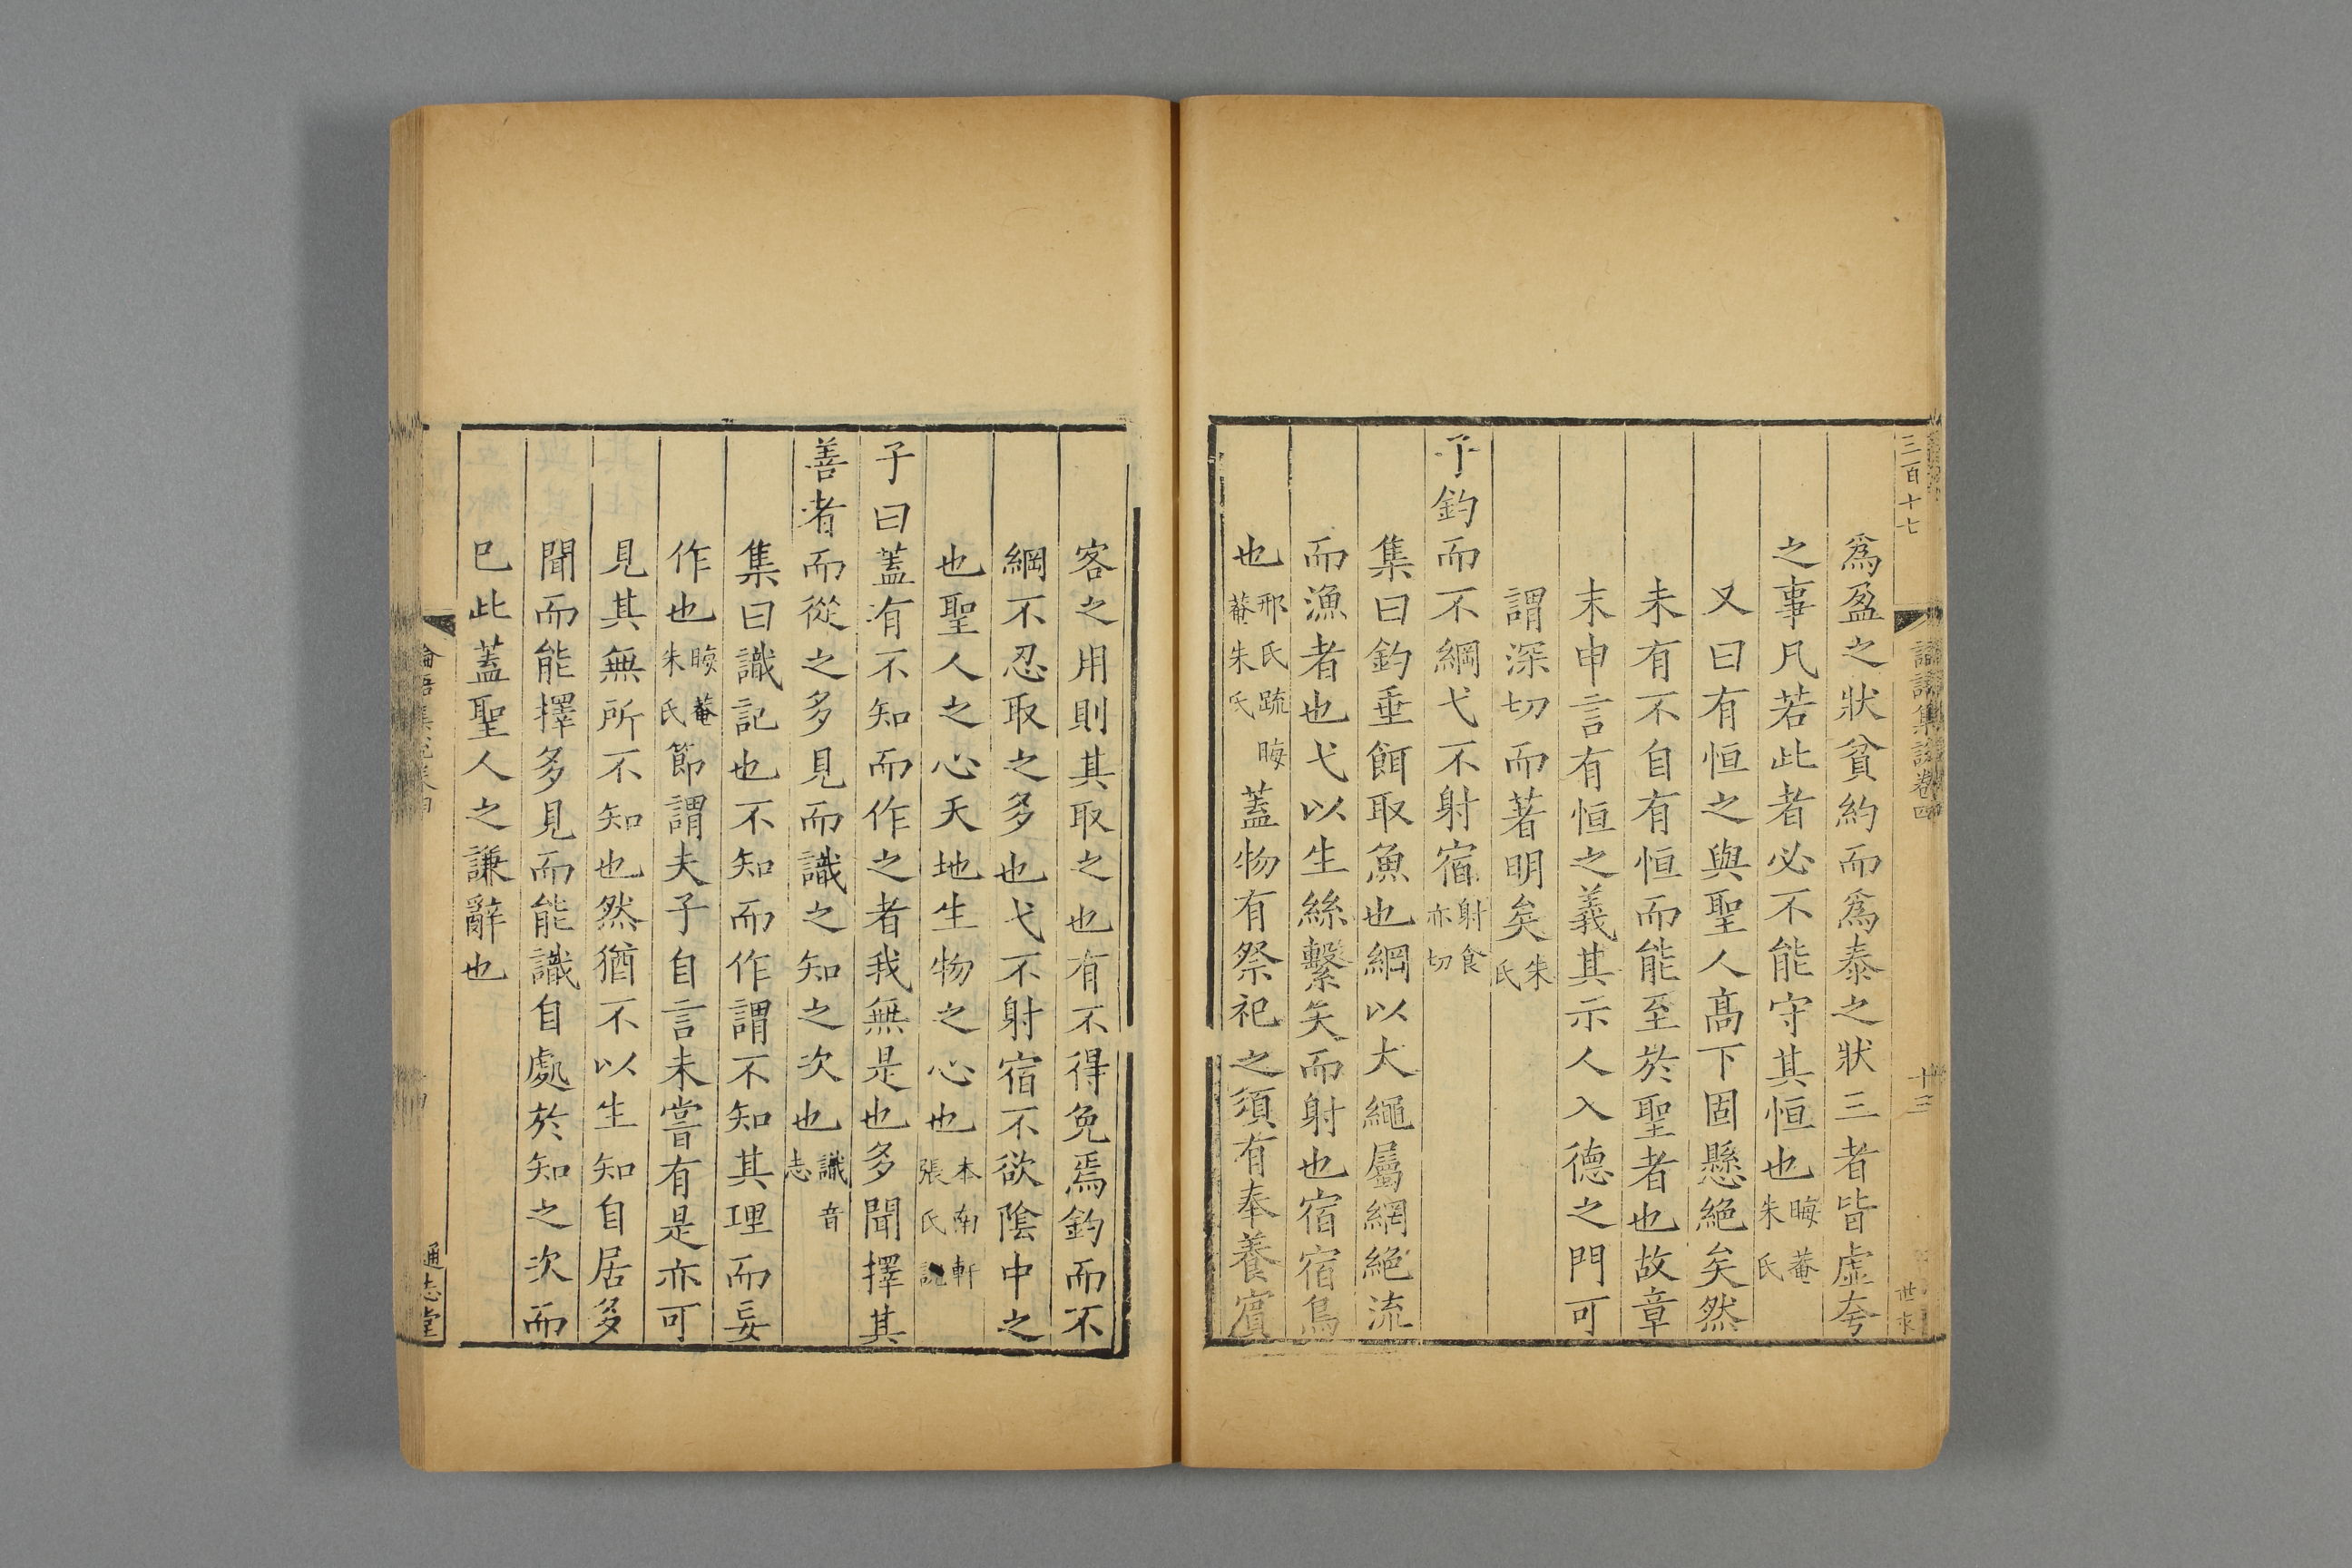 三百十七
集說卷四
十三
爲盈之狀貧約而爲泰之狀三者皆虛夸
之事凡若此者必不能守其恒也晦菴朱氏
又曰有恒之與聖人高下固懸絕矣然
未有不自有恒而能至於聖者也故章
末申言有恒之義其示人入德之門可
謂深切而著明矣朱氏
子釣而不綱弋不射宿射食亦切
集曰釣垂餌取魚也綱以大繩屬網絕流
而漁者也弋以生絲繫矢而射也宿宿鳥
也邢氏疏晦菴朱氏蓋物有祭祀之須有奉養賓
客之用則其取之也有不得免焉釣而不
綱不忍取之多也弋不射宿不欲陰中之
也聖人之心天地生物之心也本南軒張氏說
子曰蓋有不知而作之者我無是也多聞擇其
善者而從之多見而識之知之次也識音志
集曰識記也不知而作謂不知其理而妄
作也晦菴朱氏節謂夫子自言未嘗有是亦可
見其無所不知也然猶不以生知自居多
聞而能擇多見而能識自處於知之次而
已此蓋聖人之謙辭也
通志堂